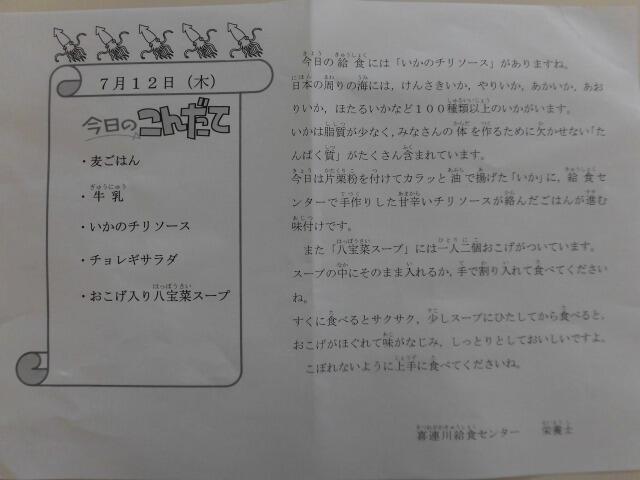 7月12日（木）
今日のこんだて
・麦ごはん
・牛乳
・いかのチリソース
・チョレギサラダ
・おこげ入り八宝菜スープ
今日の給食には「いかのチリソース」がありますね。
日本の周りの海には，けんさきいか，やりいか，あかいか，あお
りいか，ほたるいかなど１００種類以上のいかがいます。
いかは脂質が少なく，みなさんの体を作るために欠かせない「た
んぱく質」がたくさん含まれています。
今日は片栗粉を付けてカラッと油で揚げた「いか」に，給食セ
ンターで手作りした甘辛いチリソースが絡んだごはんが進む
味付けです。
また「八宝菜スープ」には一人二個おこげがついています。
スープの中にそのまま入れるか，手で割り入れて食べてください
ね。
すぐに食べるとサクサク，少しスープにひたしてから食べると，
おこげがほぐれて味がなじみ，しっとりとしておいしいですよ。
こぼれないように上手に食べてくださいね。
喜連川給食センター　栄養士